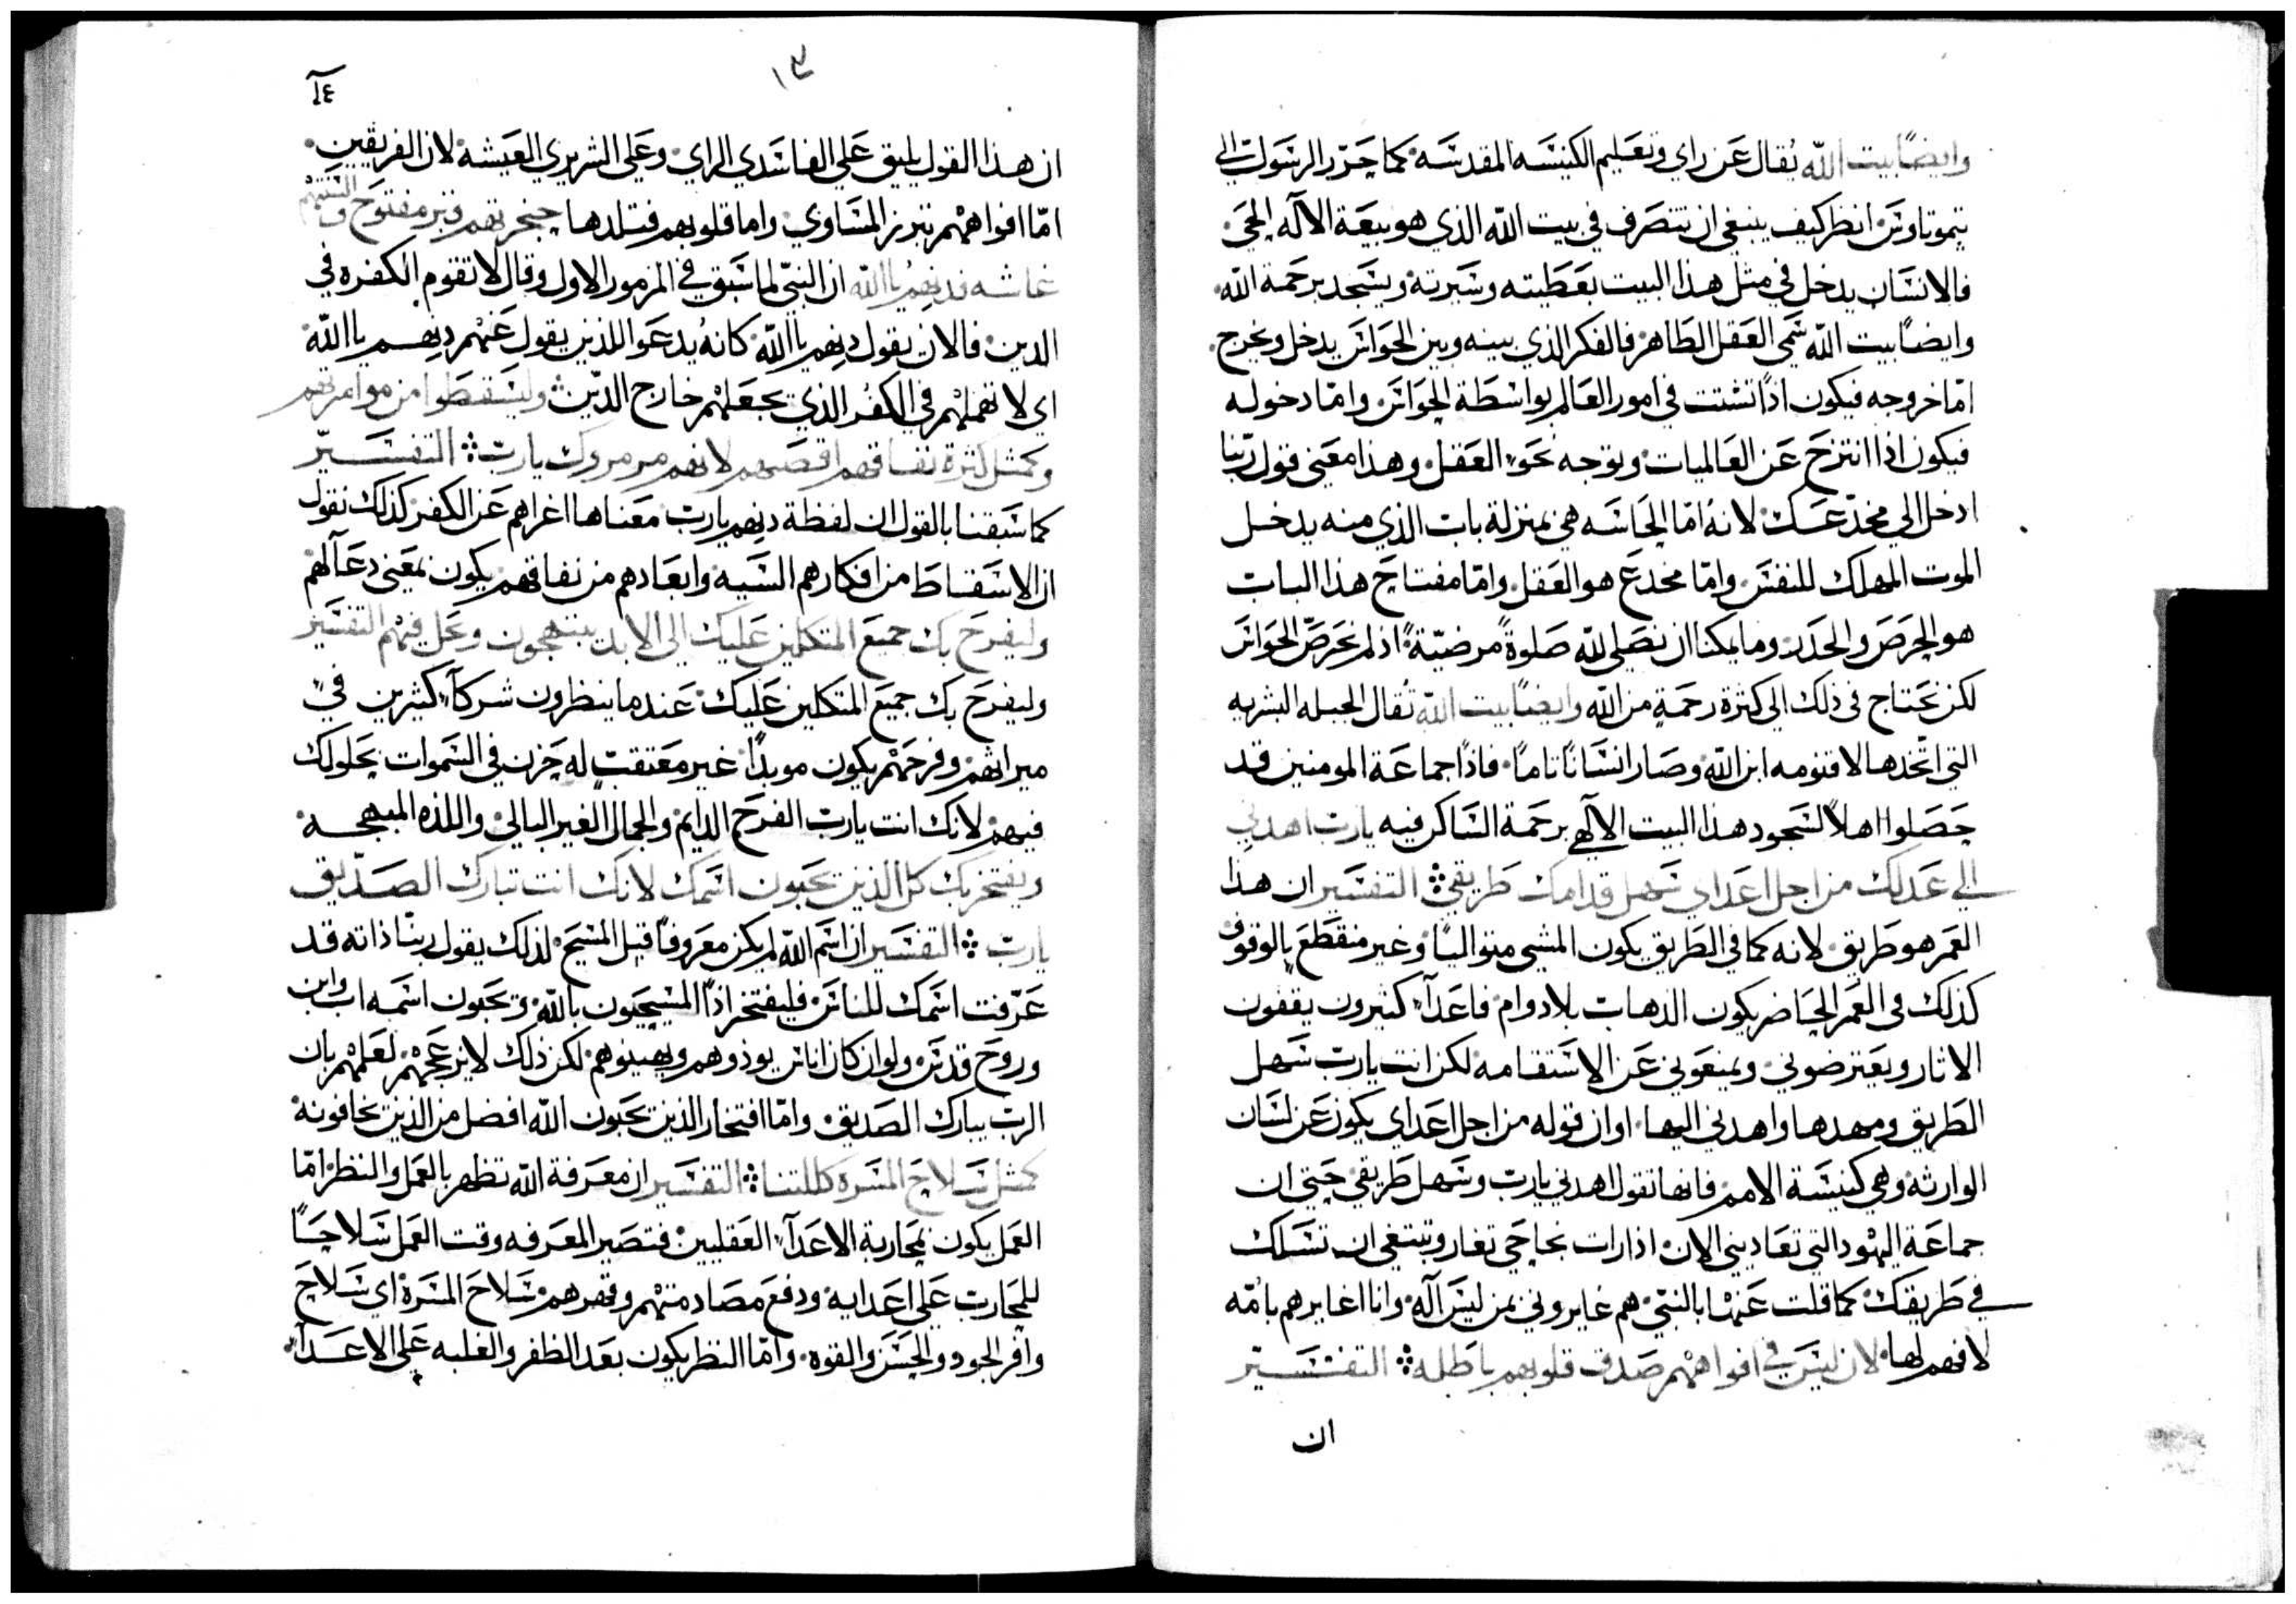 وايضًا بيت الله يُقال عَن راي وتعَليم الكنيسَه المقدسَه كما حَرّر الرسَول الي
تيموتاوسَ انظر كيف ينبغي ان تتصَرف في بيت الله الذي هو بيعَة الاله الحَي
فالانسَان يدخل في مثل هذا البيت بعَطيته وسَيرته ويسَجد برحَمة الله
وايضًا بيت الله سَمي العَقل الطَاهر فالفكر الذي بينه وبين الحَواسَ يدخل ويخرج
امّا خروجه فيكون اذا تشتت في امور العَالم بواسَطَة الحَواسَ وامّا دخوله
فيكون اذا انتزحَ عَن العَالميات وتوجه نحَو العَقل وهذا معَني قول ربّنا
ادخل الي مخدَعَك لانهُ امّا الحَاسَه هي بمنزلة باب الذي منه يدخل
الموت المهلك للنفسَ وامّا مخدعَ هو العَقل وامّا مفتاحَ هذا الباب
هو الحَرصَ والحَدر وما يمكنا ان نصَلي لله صَلوةً مرضيّةً اذ لم نحَرصَ الحَواسَ
لكن نحَتاج في ذلك الي كثرة رحَمةٍ من الله وايضًا بيت الله تُقال الجبله البشريه
التي اتّخذها لاقنومه ابن الله وصَار انسَانًا تامًا فاذًا جماعَة المومنين قد
حَصَلوا اهلاً لسَجود هذا البيت الالهي برحَمة السَاكن فيه يارب اهدني
الي عَدلك من اجل اعَداي سَهل قدامك طَريقي التفسَير ان هذا
العَمر هو طَريق لانه كما في الطَريق يكون المشي متواليًا وغير منقطَعَ بالوقوف
كذلك في العَمر الحَاضر يكون الذهاب بلا دوام فاعَدآء كثيرون يقفون
الاثار ويعَترضوني ويمنعَوني عَن الاسَتقامه لكن انت يارب سَهل
الطَريق ومهدها واهدني اليها او ان قوله من اجل اعَداي يكون عَن لسَان
الوارثه وهي كنيسَة الامم فانها تقول اهدني يارب وسَهل طَريقي حَتي ان
جماعَة اليهود التي تعَاديني الان اذا رات نجاحَي تغار وتبتغي ان تسَلك
في طَريقك كما قلت عَنها بالنبيّ هم غايروني بمن ليسَ اله وانا اغايرهم بامّه
لا فهم لها لان ليسَ في افواههم صَدق قلوبهم باطَله التفسَير
ان
١٣
١٤
ان هذا القول يليق عَلي الفاسَدي الراي وعَلي الشريري العَيشه لان الفريقين
امّا افواههم تبرز المسَاوي واما قلوبهم فتلدها حنجرتهم قبر مفتوحَ والسَنتهم
غاشه فدنهم يا الله ان النبيّ لما سَبق في المزمور الاول وقال لا تقوم الكفره في
الدين فالان يقول دنهم يا الله كانهُ يدعَوا للذين يقول عَنهم دنهم يا الله
اي لا تهملهم في الكفُر الذي يجعَلهم خارج الدّين وليسَقطَوا من موامرتهم
وكمثل كثرة نفاقهم اقصَهم لانهم مرمروك يارب التفسَير
كما سَبقنا بالقول ان لفظة دنهم يارب معَناها اغراهم عَن الكفر كذلك نقول
ان الاسَقاطَ من افكارهم السَيه وابعَادهم من نفاقهم يكون بمعَني دعَآ لهم
وليفرحَ بك جميعَ المتكلين عَليك الي الابد يبتهجون وتحَل فيهم التفسَير
وليفرحَ بك جميعَ المتكلين عَليك عَندما ينظرون شركآء كثيرين في
ميراثهم وفرحَهم يكون موبدًا غير معَتقب له حَزن في السَموات بحَلولك
فيهم لانك انت يارب الفرحَ الدايم والجمال الغير البالي واللذه المبهجه
ويفتخر بك كل الذين يحَبون اسَمك لانك انت تبارك الصَدّيق
يارب التفسَير ان اسَم الله لم يكن معَروفًا قبل المسَيحَ لذلك يقول ربنا ذاته قد
عَرّفت اسَمك للناسَ فليفتخر اذًا المسَيحَيون بالله ويحَبون اسَمه اب وابن
وروحَ قدسَ ولو ان كان اناسَ يوذوهم ويهينوهم لكن ذلك لا يزعَجهم لعَلمهم بان
الرب يبارك الصَديق وامّا افتخار الذين يحَبون الله افضل من الذين يخافونه
كمثل سَلاحَ المسَره كللتنا التفسَير ان معَرفة الله تظهر بالعَمل والنظر امّا
العَمل يكون بمحَاربة الاعَدآء العَقليين فتصَير المعَرفه وقت العَمل سَلاحًا
للمحَارب عَلي اعَدايه ودفعَ مصَادمتهم وقهرهم سَلاحَ المسَره اي سَلاحَ
وافر الجود والحَسَن والقوه وامّا النظر يكون بعَد الظفر والغلبه عَلي الاعَدآء